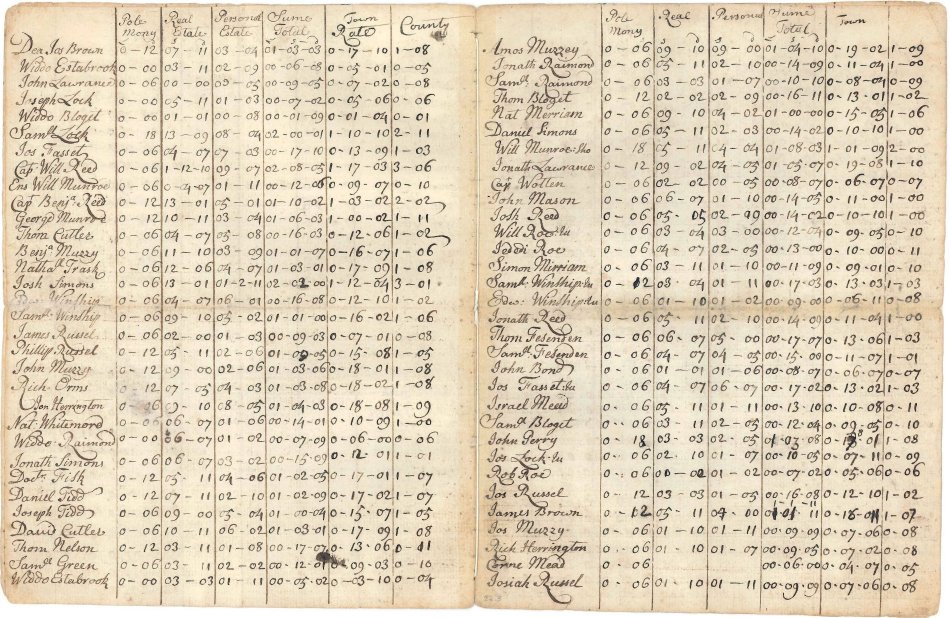 Pole Mony Real Estate Personal Estate Sume Totul Town Rate County
Dea Jos Brown 0-12 07-11 03-04 01-03-03 0-17-10 1-08
Widdo Estabrook 0-00 03-11 02-09 00-06-08 0-05-01 0-05
John Laurance 0-06 00-00 03-05 00-09-05 0-07-02 0-08
Joseph Lock 0-06 05-11 01-03 00-07-02 0-05-06 0-06
Widdo Bloget 0-00 01-01 00-08 00-01-09 0-01-04 0-01
Samll Lock 0-18 13-09 08-04 02-00-01 1-10-10 2-11
Jos Fasset 0-06 04-07 07-03 00-17-10 0-13-09 1-03
Cap Will Reed 0-06 1-12-10 09-07 02-08-05 1-17-03 3-06
Ens Will Munroe 0-06 0-04-07 01-11 00-12-06 0-09-07 0-10
Cap Benja Reed 0-12 13-01 05-01 01-10-02 1-03-02 2-02
George Munroe 0-12 10-11 03-04 01-06-03 1-00-02 1-11
Thom Cutler 0-06 04-07 05-08 00-16-03 0-12-06 1-02
Benja Muzzy 0-06 11-10 03-09 01-01-07 0-16-07 1-06
Natha Trask 0-06 12-06 04-07 01-03-01 0-17-09 1-08
Josh Simons 0-06 13-01 01-2-11 02-02-00 1-12-04 3-01
Edw Winship 0-06 04-07 06-01 00-16-08 0-12-10 1-02
Samll Winship 0-06 09-10 05-02 01-01-00 0-16-02 1-06
James Russel 0-06 02-00 01-03 00-09-03 0-07-01 0-08
Phillip Russel 0-12 05-11 02-06 01-00-05 0-15-08 1-05
John Muzzy 0-12 09-00 02-06 01-03-06 0-18-01 1-08
Rich Arms 0-12 07-05 04-03 01-03-08 0-18-02 1-08
Jon Herrington 0-06 09-10 08-05 01-04-03 0-18-08 1-09
Nat Whitemore 0-06 06-07 01-06 00-14-01 0-10-09 1-01
Widdo Raimond 0-00 06-07 01-02 00-07-09 0-06-00 0-06
Jonath Simons 0-06 06-07 03-02 00-15-09 0-12-01 1-01
Doctr Fisk 0-12 05-11 04-06 01-02-05 0-17-01 1-07
Daniel Tidd 0-12 07-11 02-10 01-02-09 0-17-02 1-07
Joseph Tidd 0-06 09-00 05-04 01-00-04 0-15-07 1-05
David Cutler 0-06 10-11 06-02 01-03-01 0-17-09 1-08
Thom Nelson 0-12 03-11 01-08 00-17-07 0-13-06 0-11
Samll Green 0-06 03-11 02-02 00-12-01 0-09-03 0-10
Widdo Estabrook 0-00 03-03 01-11 00-05-02 0-03-10 0-04
Pole Mony Real Personal Sume Totul Town
Amos Muzzey 0-06 09-10 09-00 01-04-10 0-19-02 1-09
Jonath Raimond 0-06 05-11 02-10 00-14-09 0-11-04 1-00
Samll Raimond 0-06 03-03 01-07 00-10-10 0-08-04 0-09
Thom Bloget 0-12 02-02 02-09 00-16-11 0-13-01 1-02
Nat Merriam 0-06 09-10 04-02 01-00-00 0-15-05 1-06
Daniel Simons 0-06 05-11 02-03 00-14-02 0-10-10 1-00
Will Munroe 0-18 05-11 04-04 01-08-03 1-01-09 2-00
Jonath Laurance 0-12 09-02 04-05 01-05-07 0-19-08 1-10
Cap Wotten 0-06 02-02 00-05 00-08-07 0-06-07 0-07
John Mason 0-06 06-07 01-10 00-14-05 0-11-00 1-00
Josh Reed 0-06 05-05 02-09 00-14-02 0-10-10 1-00
Will Roe Ju 0-06 03-04 03-00 00-12-04 0-09-05 0-10
Jeddi Roe 0-06 04-07 02-05 00-13-00 0-10-00 0-11
Simon Mirriam 0-06 03-11 01-10 00-11-09 0-09-01 0-10
Samll Winship Ju 0-12 03-04 01-11 00-17-03 0-13-03 1-03
Edw: Winship Ju 0-06 01-10 01-02 00-09-00 0-06-11 0-08
Jonath Reed 0-06 05-11 02-10 00-14-09 0-11-04 1-00
Thom Fesenden 0-06 06-07 05-00 00-17-07 0-13-06 1-03
Samll Fesenden 0-06 04-07 04-05 00-15-00 0-11-07 1-01
John Bond 0-06 01-01 01-06 00-08-07 0-06-07 0-07
Jos Fasset Ju 0-06 04-07 06-07 00-17-02 0-13-02 1-03
Israel Mead 0-06 05-11 01-11 00-13-10 0-10-08 0-11
Samll Bloget 0-06 03-11 02-05 00-12-04 0-09-05 0-10
John Perry 0-18 03-03 02-05 01-03-08 0-18-01 1-08
Jos Lock Ju 0-06 02-10 01-07 00-10-05 0-07-11 0-09
Rob Roe 0-06 00-00 01-02 00-07-02 0-05-06 0-06
Jos Russel 0-12 03-03 01-05 00-16-08 0-12-10 1-02
James Brown 0-12 05-11 04-00 01-01-11 0-16-11 1-07
Jos Muzzy 0-06 01-10 01-11 00-09-09 0-07-06 0-08
Rich Herrington 0-06 01-10 01-07 00-09-05 0-07-02 0-08
Corne Mead 0-06 00-06-00 0-04-07 0-05
Josiah Russel 0-06 01-10 01-11 00-09-09 0-07-06 0-08